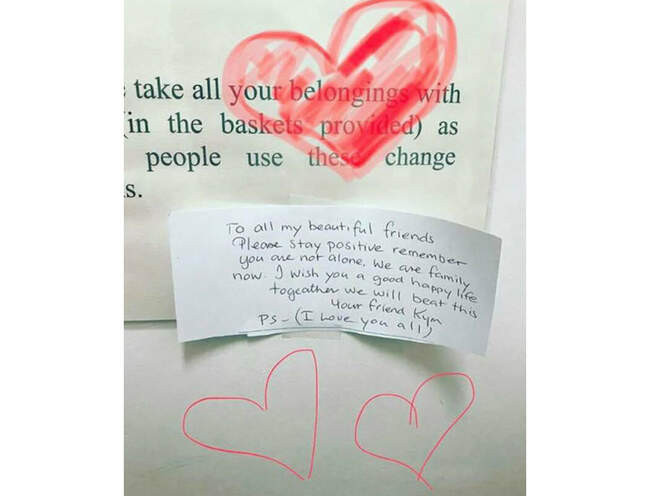 take all your belongings with
(in the baskets provided) as
people use these change
s.
To all my beautiful friends
Please stay positive remember
you are not alone. We are family
now. I wish you a good happy life
togeather we will beat this
Your friend Kym
PS - (I Love you all)